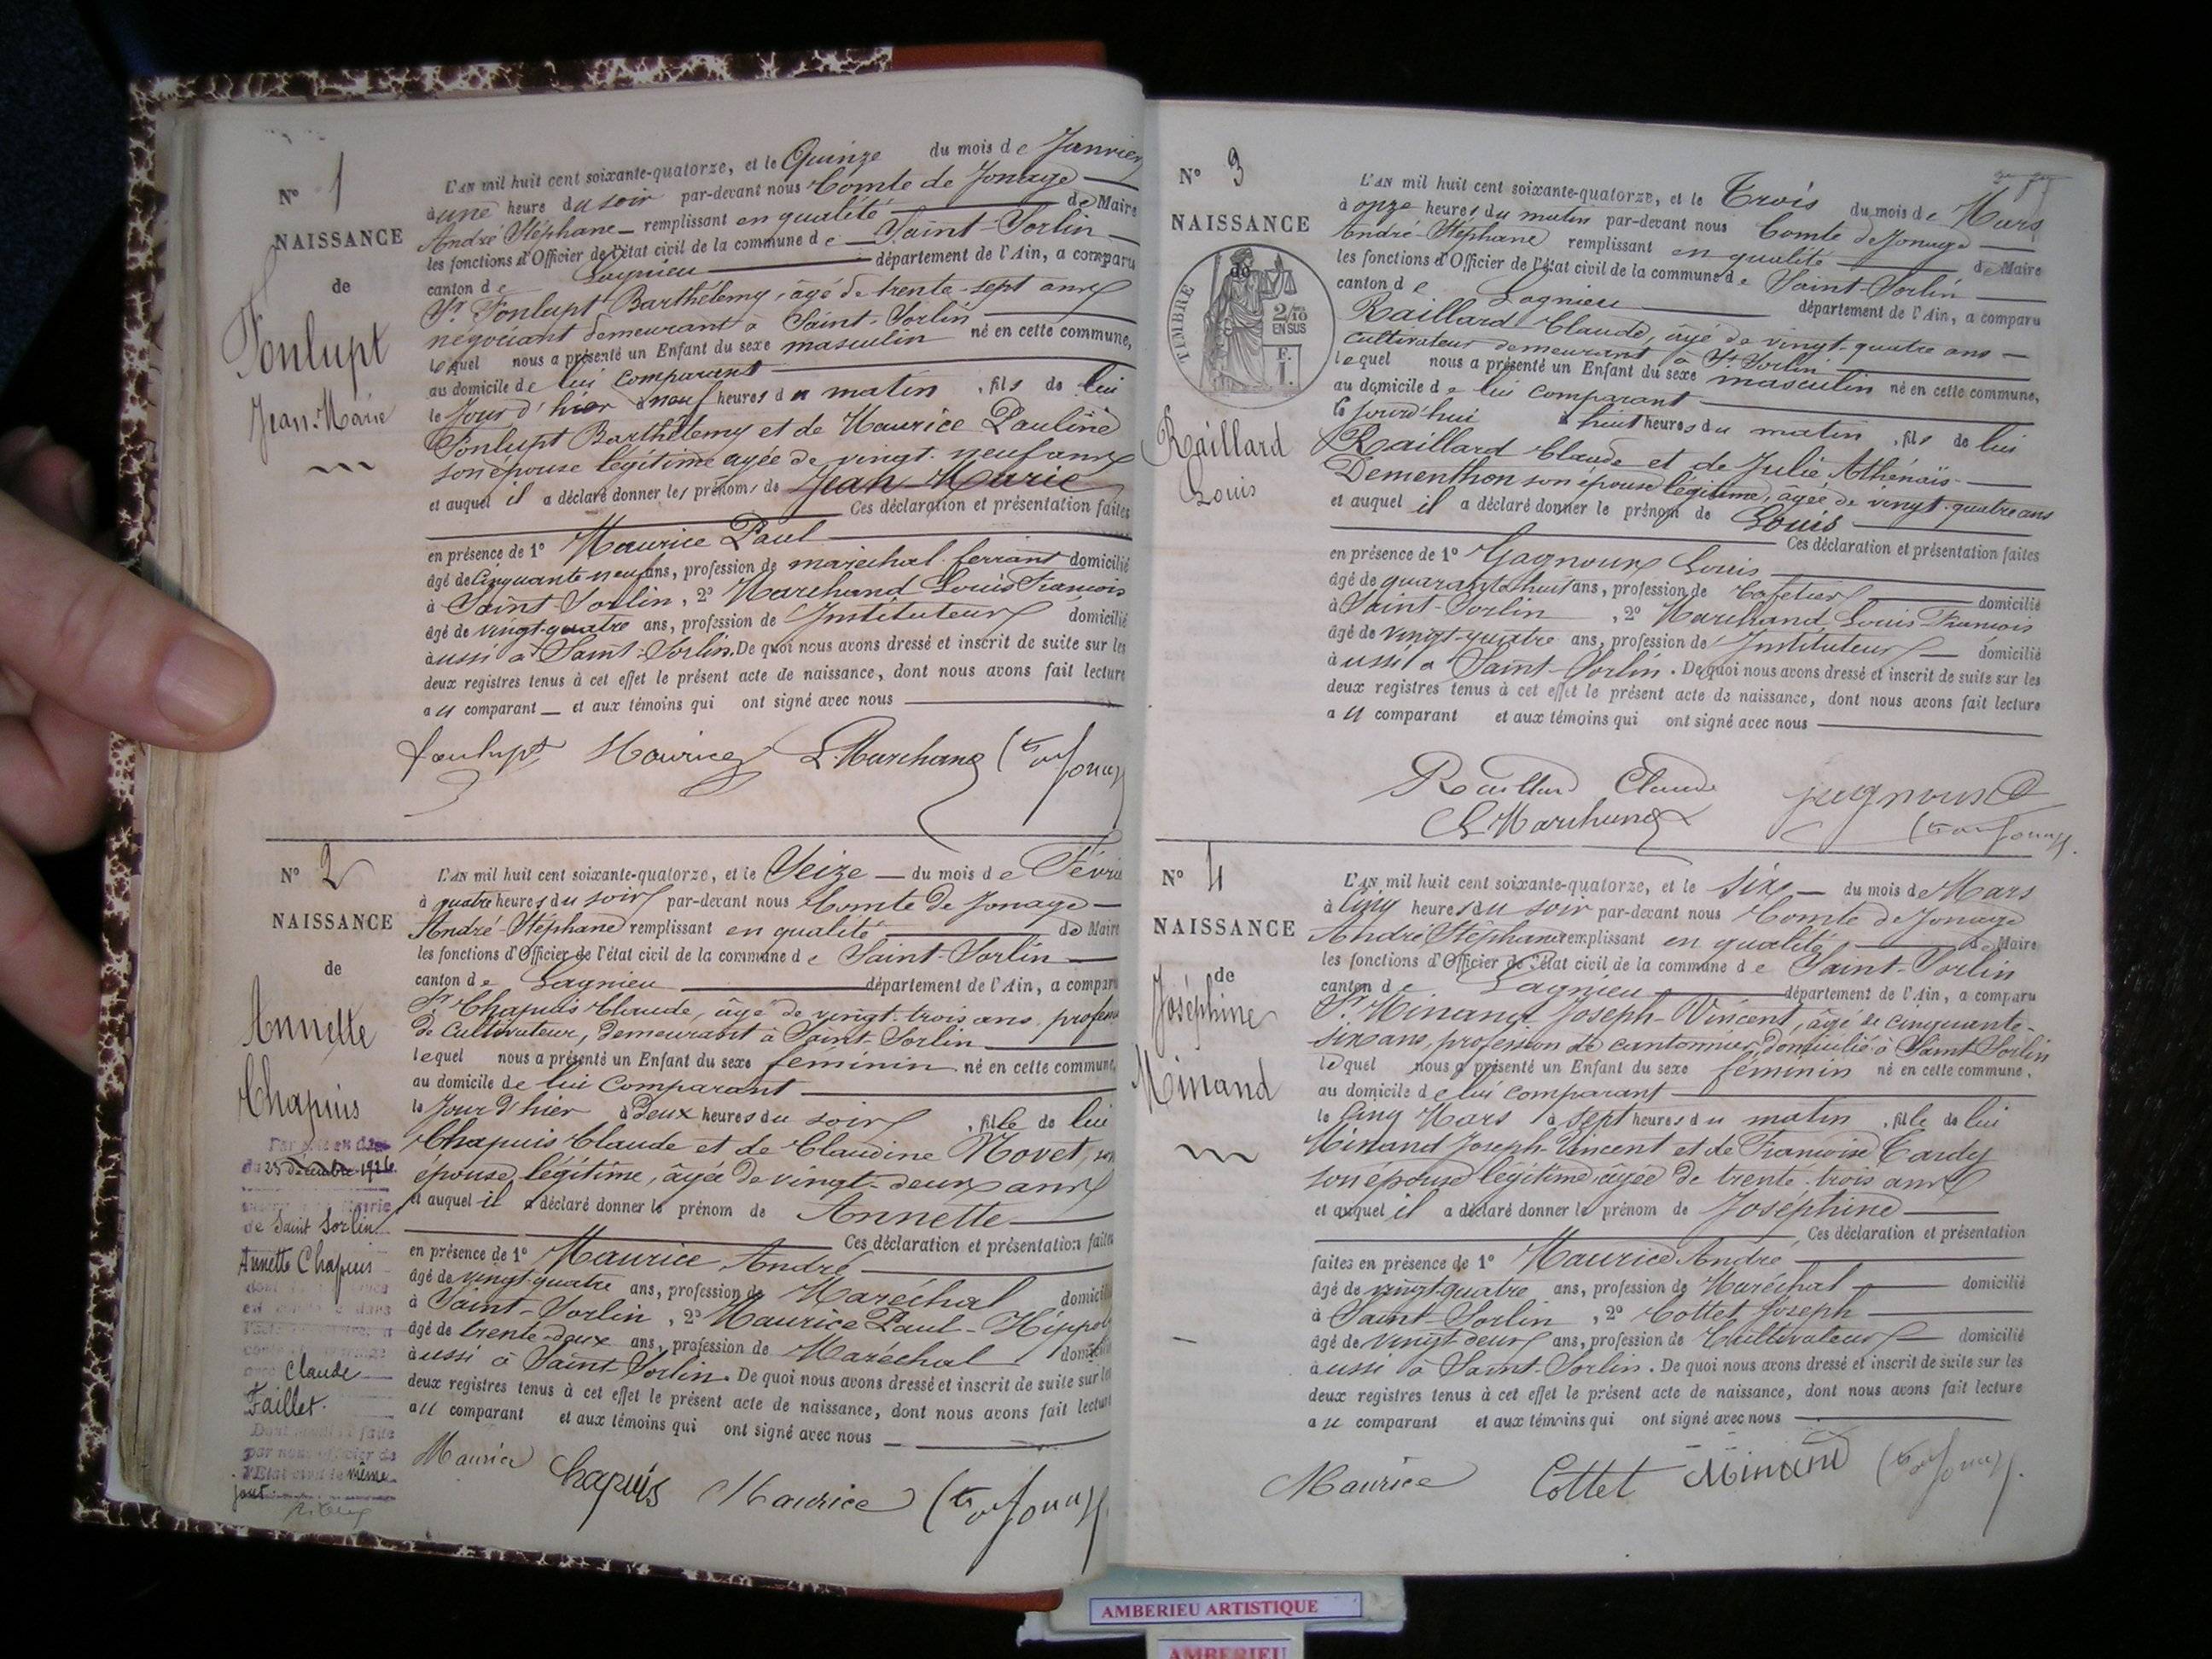 N° 1
NAISSANCE
de
Fonlupt
Jean-Marie
L'AN mil huit cent soixante-quatorze, et le Quinze du mois de Janvier
à une heure du soir par-devant nous Comte de Jonage
André Stéphane remplissant en qualité de Maire
les fonctions d'Officier de l'état civil de la commune de Saint-Sorlin
canton de Lagnieu département de l'Ain, a comparu
Sr Fonlupt Barthélemy, âgé de trente-sept ans
négociant demeurant à Saint-Sorlin
lequel nous a présenté un Enfant du sexe masculin né en cette commune,
au domicile de lui comparant
le Jour d'hier à neuf heures du matin, fils de lui
Fonlupt Barthélemy et de Maurice Pauline
son épouse légitime agée de vingt-neuf ans
et auquel il a déclaré donner les prénoms de Jean-Marie
Ces déclaration et présentation faites
en présence de 1° Maurice Paul
âgé de Cinquante neuf ans, profession de maréchal ferrant domicilié
à Saint-Sorlin, 2° Marchand Louis François
âgé de vingt-quatre ans, profession de Instituteur domicilié
aussi à Saint-Sorlin. De quoi nous avons dressé et inscrit de suite sur les
deux registres tenus à cet effet le présent acte de naissance, dont nous avons fait lecture
au comparant et aux témoins qui ont signé avec nous
fonlupt Maurice L. Marchand
N° 2
NAISSANCE
de
Annette
Chapuis
L'AN mil huit cent soixante-quatorze, et le Seize du mois de Févri
à quatre heures du soir par-devant nous Comte de Jonage
André-Stéphane remplissant en qualité de Maire
les fonctions d'Officier de l'état civil de la commune de Saint-Sorlin
canton de Lagnieu département de l'Ain, a comparu
Sr Chapuis Claude, âgé de vingt-trois ans profess
de Cultivateur, demeurant à Saint-Sorlin
lequel nous a présenté un Enfant du sexe féminin né en cette commune,
au domicile de lui comparant
le Jour d'hier à Deux heures du soir, fille de lui
Chapuis Claude et de Claudine Movet, son
épouse légitime, âgée de vingt-deux ans
et auquel il a déclaré donner le prénom de Annette
Ces déclaration et présentation faites
en présence de 1° Maurice André
âgé de vingt-quatre ans, profession de Maréchal domicilié
à Saint-Sorlin, 2° Maurice Paul-Hippol
âgé de trente-deux ans, profession de Maréchal domicilié
aussi à Saint Sorlin. De quoi nous avons dressé et inscrit de suite sur les
deux registres tenus à cet effet le présent acte de naissance, dont nous avons fait lecture
au comparant et aux témoins qui ont signé avec nous
23 décembre 1926
de Saint Sorlin
Annette Chapuis
Claude
Faillet.
par nous officier de
l'Etat civil le même
jour.
Maurice Chapuis Maurice
N° 3
NAISSANCE
de
TIMBRE
2/10
EN SUS
F.
1.
Raillard
Louis
L'AN mil huit cent soixante-quatorze, et le Trois du mois de Mars
à onze heures du matin par-devant nous Comte de Jonage
André-Stéphane remplissant en qualité de Maire
les fonctions d'Officier de l'état civil de la commune de Saint-Sorlin
canton de Lagnieu département de l'Ain, a comparu
Raillard Claude, âgé de vingt-quatre ans
cultivateur demeurant à St Sorlin
lequel nous a présenté un Enfant du sexe masculin né en cette commune,
au domicile de lui comparant
le jourd'hui à huit heures du matin, fils de lui
Raillard Claude et de Julie Athénaïs
Dementhon son épouse légitime, âgée de vingt-quatre ans
et auquel il a déclaré donner le prénom de Louis
Ces déclaration et présentation faites
en présence de 1° Gagnoux Louis
âgé de quarante huit ans, profession de Cafetier domicilié
à Saint-Sorlin, 2° Marchand Louis François
âgé de vingt-quatre ans, profession de Instituteur domicilié
aussi à Saint-Sorlin. De quoi nous avons dressé et inscrit de suite sur les
deux registres tenus à cet effet le présent acte de naissance, dont nous avons fait lecture
au comparant et aux témoins qui ont signé avec nous
Raillard Claude gagnoux
L. Marchand
N° 4
NAISSANCE
de
Joséphine
Minand
L'AN mil huit cent soixante-quatorze, et le Six du mois de Mars
à Cinq heures du soir par-devant nous Comte de Jonage
André Stéphane remplissant en qualité de Maire
les fonctions d'Officier de l'état civil de la commune de Saint-Sorlin
canton de Lagnieu département de l'Ain, a comparu
Sr Minand Joseph-Vincent, âgé de cinquante-
six ans, profession de cantonnier, domicilié à Saint Sorlin
lequel nous a présenté un Enfant du sexe féminin né en cette commune,
au domicile de lui comparant
le Cinq Mars à Sept heures du matin, fille de lui
Minand Joseph-Vincent et de Françoise Tardy
son épouse légitime agée de trente-trois ans
et auquel il a déclaré donner le prénom de Joséphine
Ces déclaration et présentation
faites en présence de 1° Maurice André
âgé de vingt-quatre ans, profession de Maréchal domicilié
à Saint-Sorlin, 2° Cottet Joseph
âgé de vingt-deux ans, profession de Cultivateur domicilié
aussi à Saint-Sorlin. De quoi nous avons dressé et inscrit de suite sur les
deux registres tenus à cet effet le présent acte de naissance, dont nous avons fait lecture
au comparant et aux témoins qui ont signé avec nous
Maurice Cottet Minand
AMBERIEU ARTISTIQUE
AMBERIEU